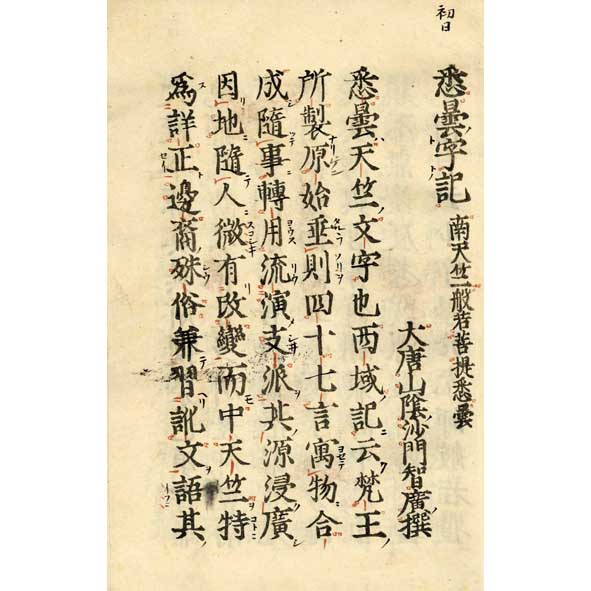 初日
悉曇字記 南天竺般若菩提悉曇
大唐山陰沙門智廣撰
悉曇天竺文字也西域記云梵王
所製原始垂則四十七言寓物合
成隨事轉用流演支派其源浸廣
因地隨人微有改變而中天竺特
為詳正邊裔殊俗兼習訛文語其